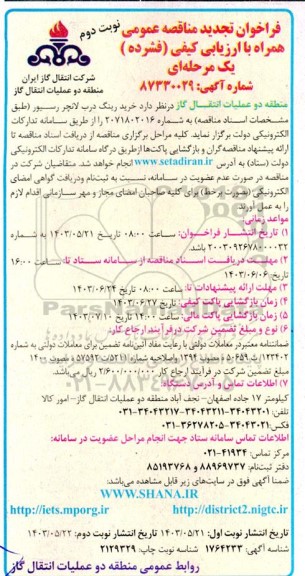 نوبت دوم
فراخوان تجدید مناقصه عمومی
همراه با ارزیابی کیفی (فشرده)
یک مرحله‌ای
شماره آگهی: ۸۷۳۳۰۰۲۹
شرکت انتقال گاز ایران
منطقه دو عملیات انتقال گاز
منطقه دو عملیات انتقـــال گاز درنظر دارد خرید رینگ درب لانچر رسیور (طبق
مشخصات اسناد مناقصه) به شماره ۲۰۷۱۸۰۲۰۱۶ را از طریق سامانه تدارکات
الکترونیکی دولت برگزار نماید. کلیه مراحل برگزاری مناقصه از دریافت اسناد مناقصه تا
ارائه پیشنهاد مناقصه‌گران و بازگشایی پاکت‌ها ازطریق درگاه سامانه تدارکات الکترونیکی
دولت (ستاد) به آدرس www.setadiran.ir انجام خواهد شد. متقاضیان شرکت در
مناقصه در صورت عدم عضویت در سامانه، نسبت به ثبت‌نام ودریافت گواهی امضای
الکترونیکی (بصورت برخط) برای کلیه صاحبان امضای مجاز و مهر سازمانی اقدام لازم
را به عمل آورند.
مواعد زمانی:
۱) تاریخ انتشـــار فراخـــوان: ساعت ۰۸:۰۰ تاریخ ۱۴۰۳/۰۵/۲۱ به شماره
۲۰۰۳۰۹۲۶۷۸۰۰۰۰۳۲ باشد
۲) مهلـــت دریافـــت اســـناد مناقصه از ســـامانه ستاد تا: ساعت ۱۶:۰۰
تاریخ: ۱۴۰۳/۰۶/۰۶
۳) مهلت ارائه پیشنهادات تا: ساعت ۰۸:۰۰ تاریخ ۱۴۰۳/۰۶/۲۴
۴) زمان بازگشایی پاکت کیفی: تاریخ ۱۴۰۳/۰۶/۲۷
۵) زمان بازگشایی پاکت مالی: ساعت ۱۴:۰۰ تاریخ ۱۴۰۳/۰۷/۱۰
۶) نوع و مبلغ تضمین شرکت درفرآیند ارجاع کار:
ضمانتنامه معتبردر معاملات دولتی با رعایت مفاد آئین‌نامه تضمین برای معاملات دولتی به شماره
مبلغ تضمین شرکت در فرآیند ارجاع کار ۲/۶۰۰/۰۰۰/۰۰۰ ریال می‌باشد.
۷) اطلاعات تماس و آدرس دستگاه:
کیلومتر ۱۷ جاده اصفهان- نجف آباد منطقه دو عملیات انتقال گاز- امور کالا
تلفن: ۳۴۰۴۳۲۰۱-۳۴۰۴۳۲۱۱-۳۴۰۴۳۲۱۷-۰۳۱
فکس: ۳۴۰۴۳۰۲۱-۳۶۲۷۸۲۰۵-۰۳۱
اطلاعات تماس سامانه ستاد جهت انجام مراحل عضویت در سامانه:
مرکز تماس: ۴۱۹۳۴-۰۲۱
دفتر ثبت‌نام: ۸۸۹۶۹۷۳۷ و ۸۵۱۹۳۷۶۸
ضمنا آگهی فوق در سایت‌های زیر قابل مشاهده می‌باشد:
WWW.SHANA.IR
http://iets.mporg.ir http://district2.nigtc.ir
تاریخ انتشار نوبت اول: ۱۴۰۳/۰۵/۲۱ تاریخ انتشار نوبت دوم: ۱۴۰۳/۰۵/۲۲
شناسه آگهی: ۱۷۶۴۲۳۳ شناسه نوبت چاپ: ۲۱۲۹۳۲۹
روابط عمومی منطقه دو عملیات انتقال گاز